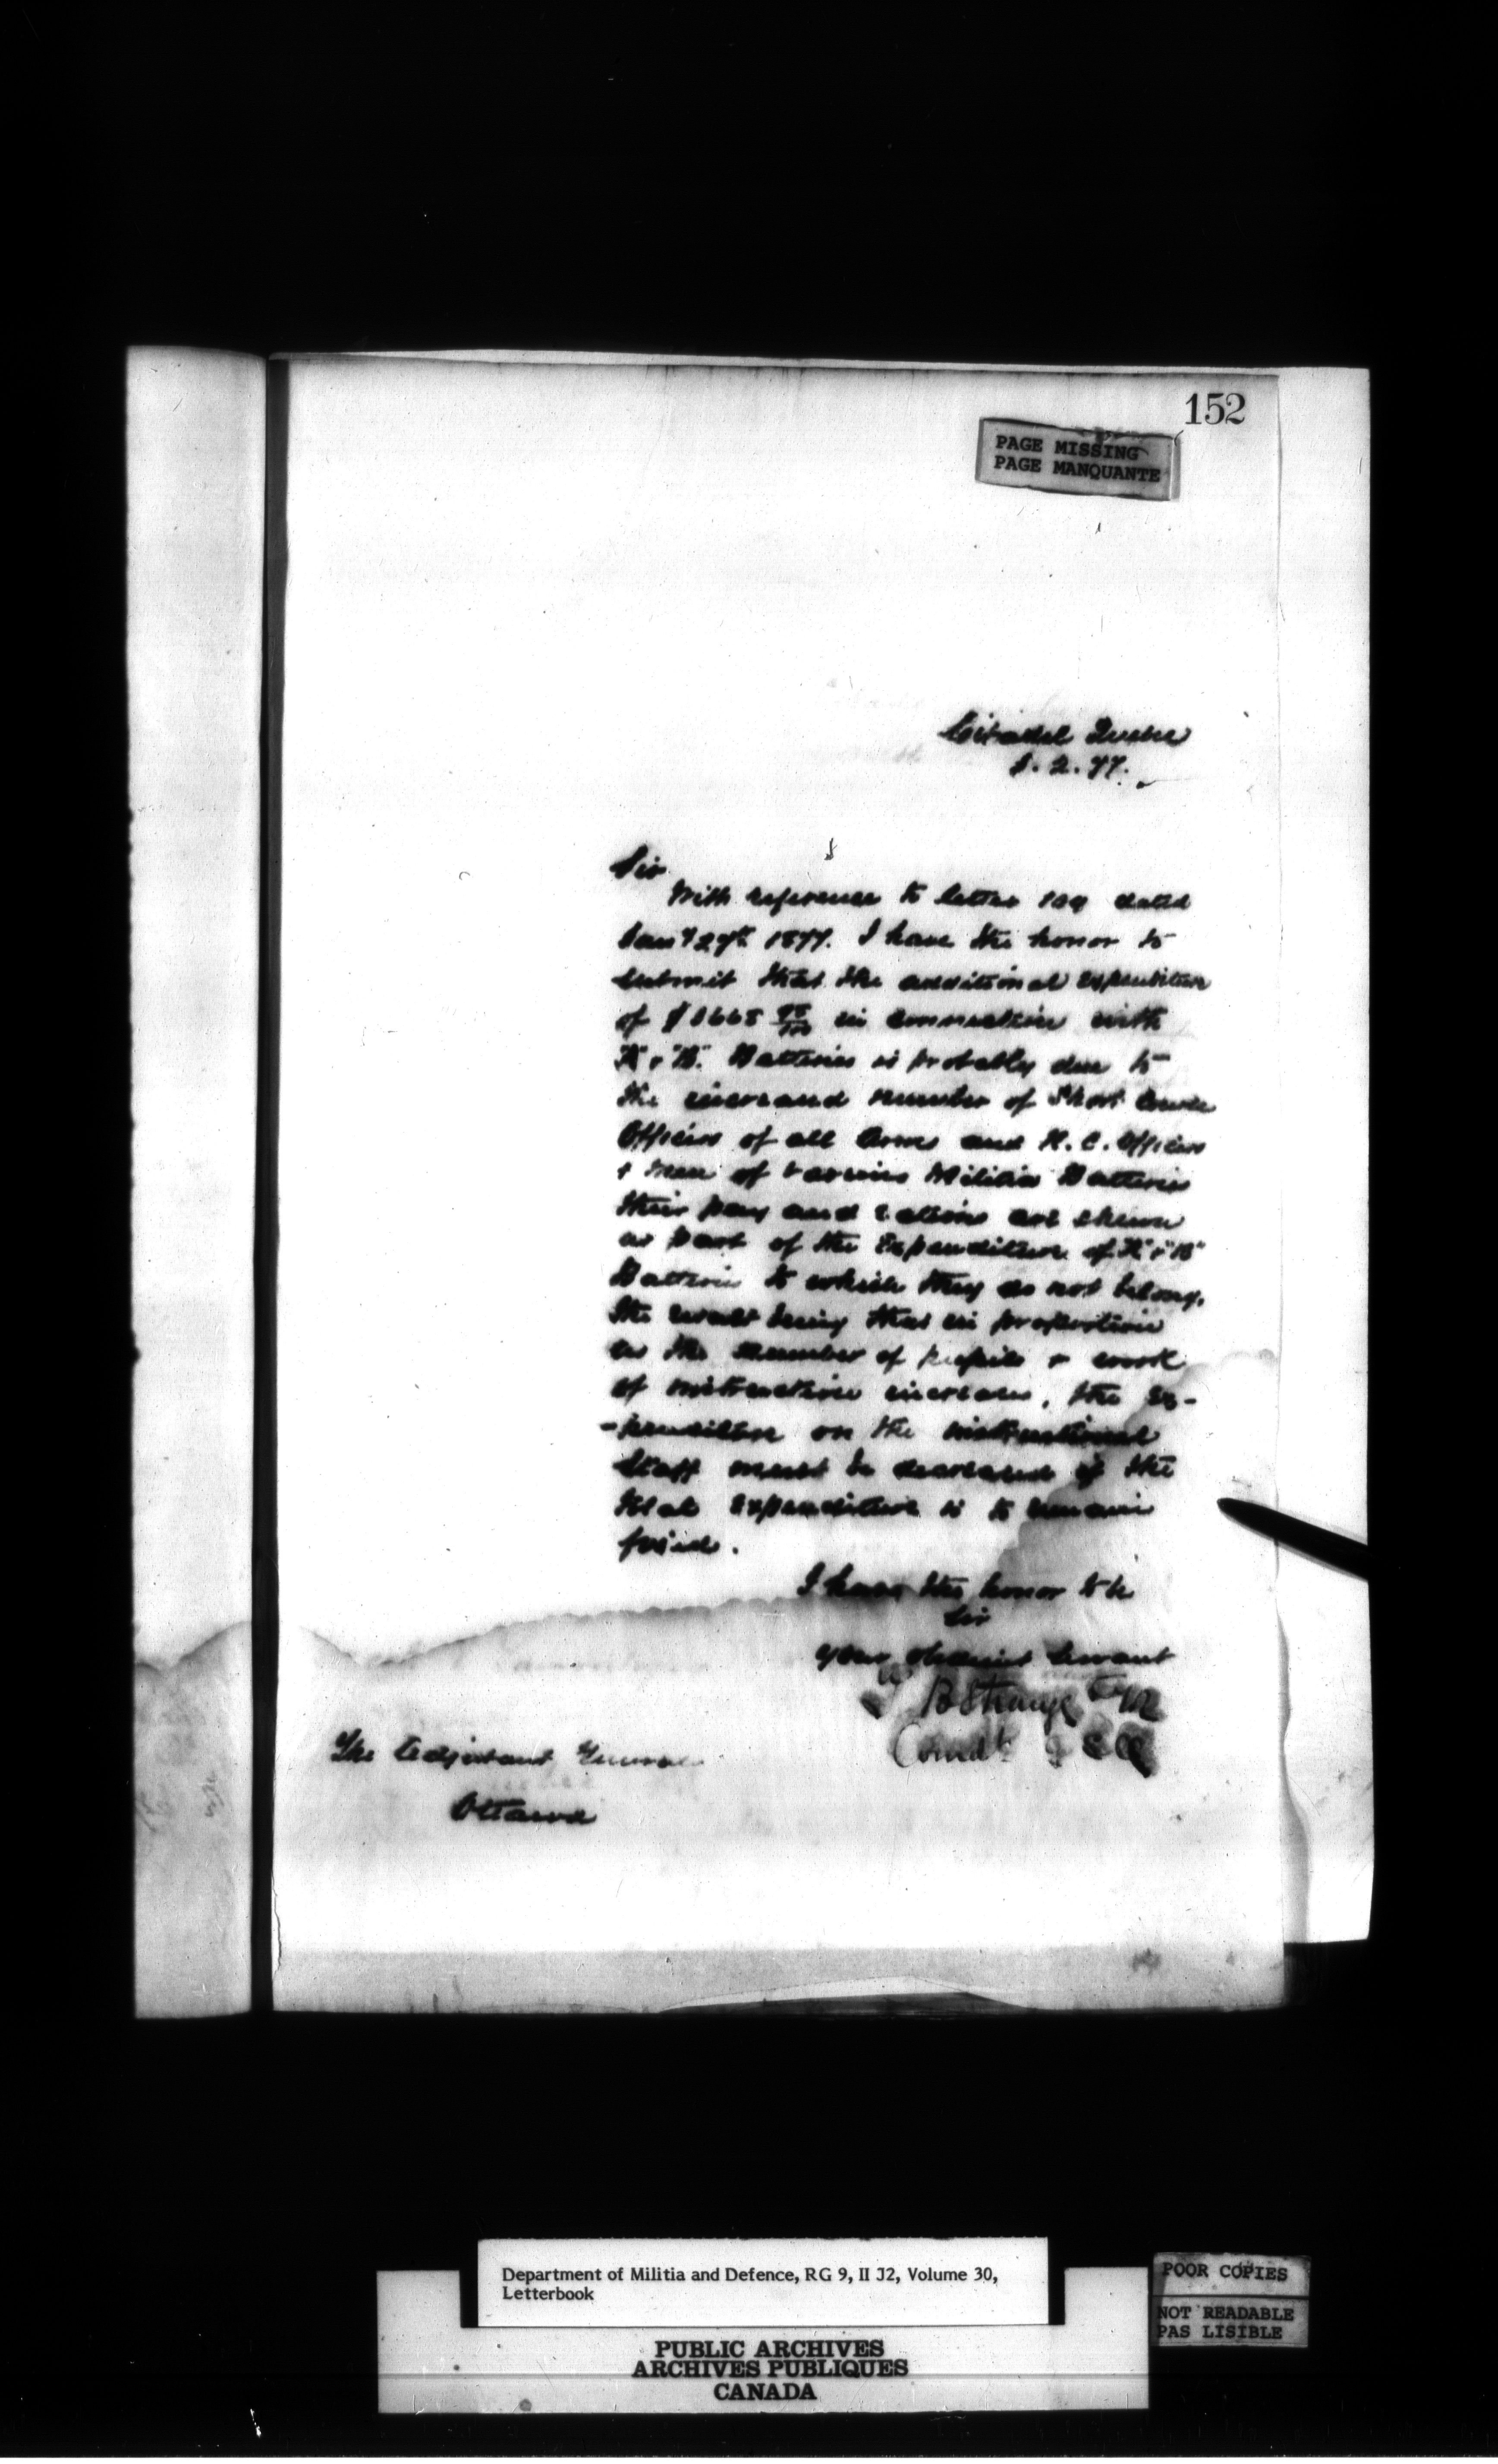 152
PAGE MISSING
PAGE MANQUANTE
Citadel Quebec
2. 77.
Sir
With reference to letter dated
27th 1877. I have the honor to
submit that the additional expenditure
of in connection with
"A" & "B" Batteries is probably due to
the increased number of Short Course
Officers of all Arms and N. C. Officers
& men of various Militia Batteries
their pay and rations are shewn
as part of the Expenditure of "A" & "B"
Batteries to which they do not belong,
the result being that in proportion
as the number of pupils & work
of instruction increases, the Ex-
-penditure on the instructional
Staff must be decreased if the
total expenditure is to remain
fixed.
I have the honor to be
Sir
your obedient Servant
T B Strange
Comdt
The Adjutant General
Ottawa
Department of Militia and Defence, RG 9, II J2, Volume 30,
Letterbook
POOR COPIES
NOT READABLE
PAS LISIBLE
PUBLIC ARCHIVES
ARCHIVES PUBLIQUES
CANADA